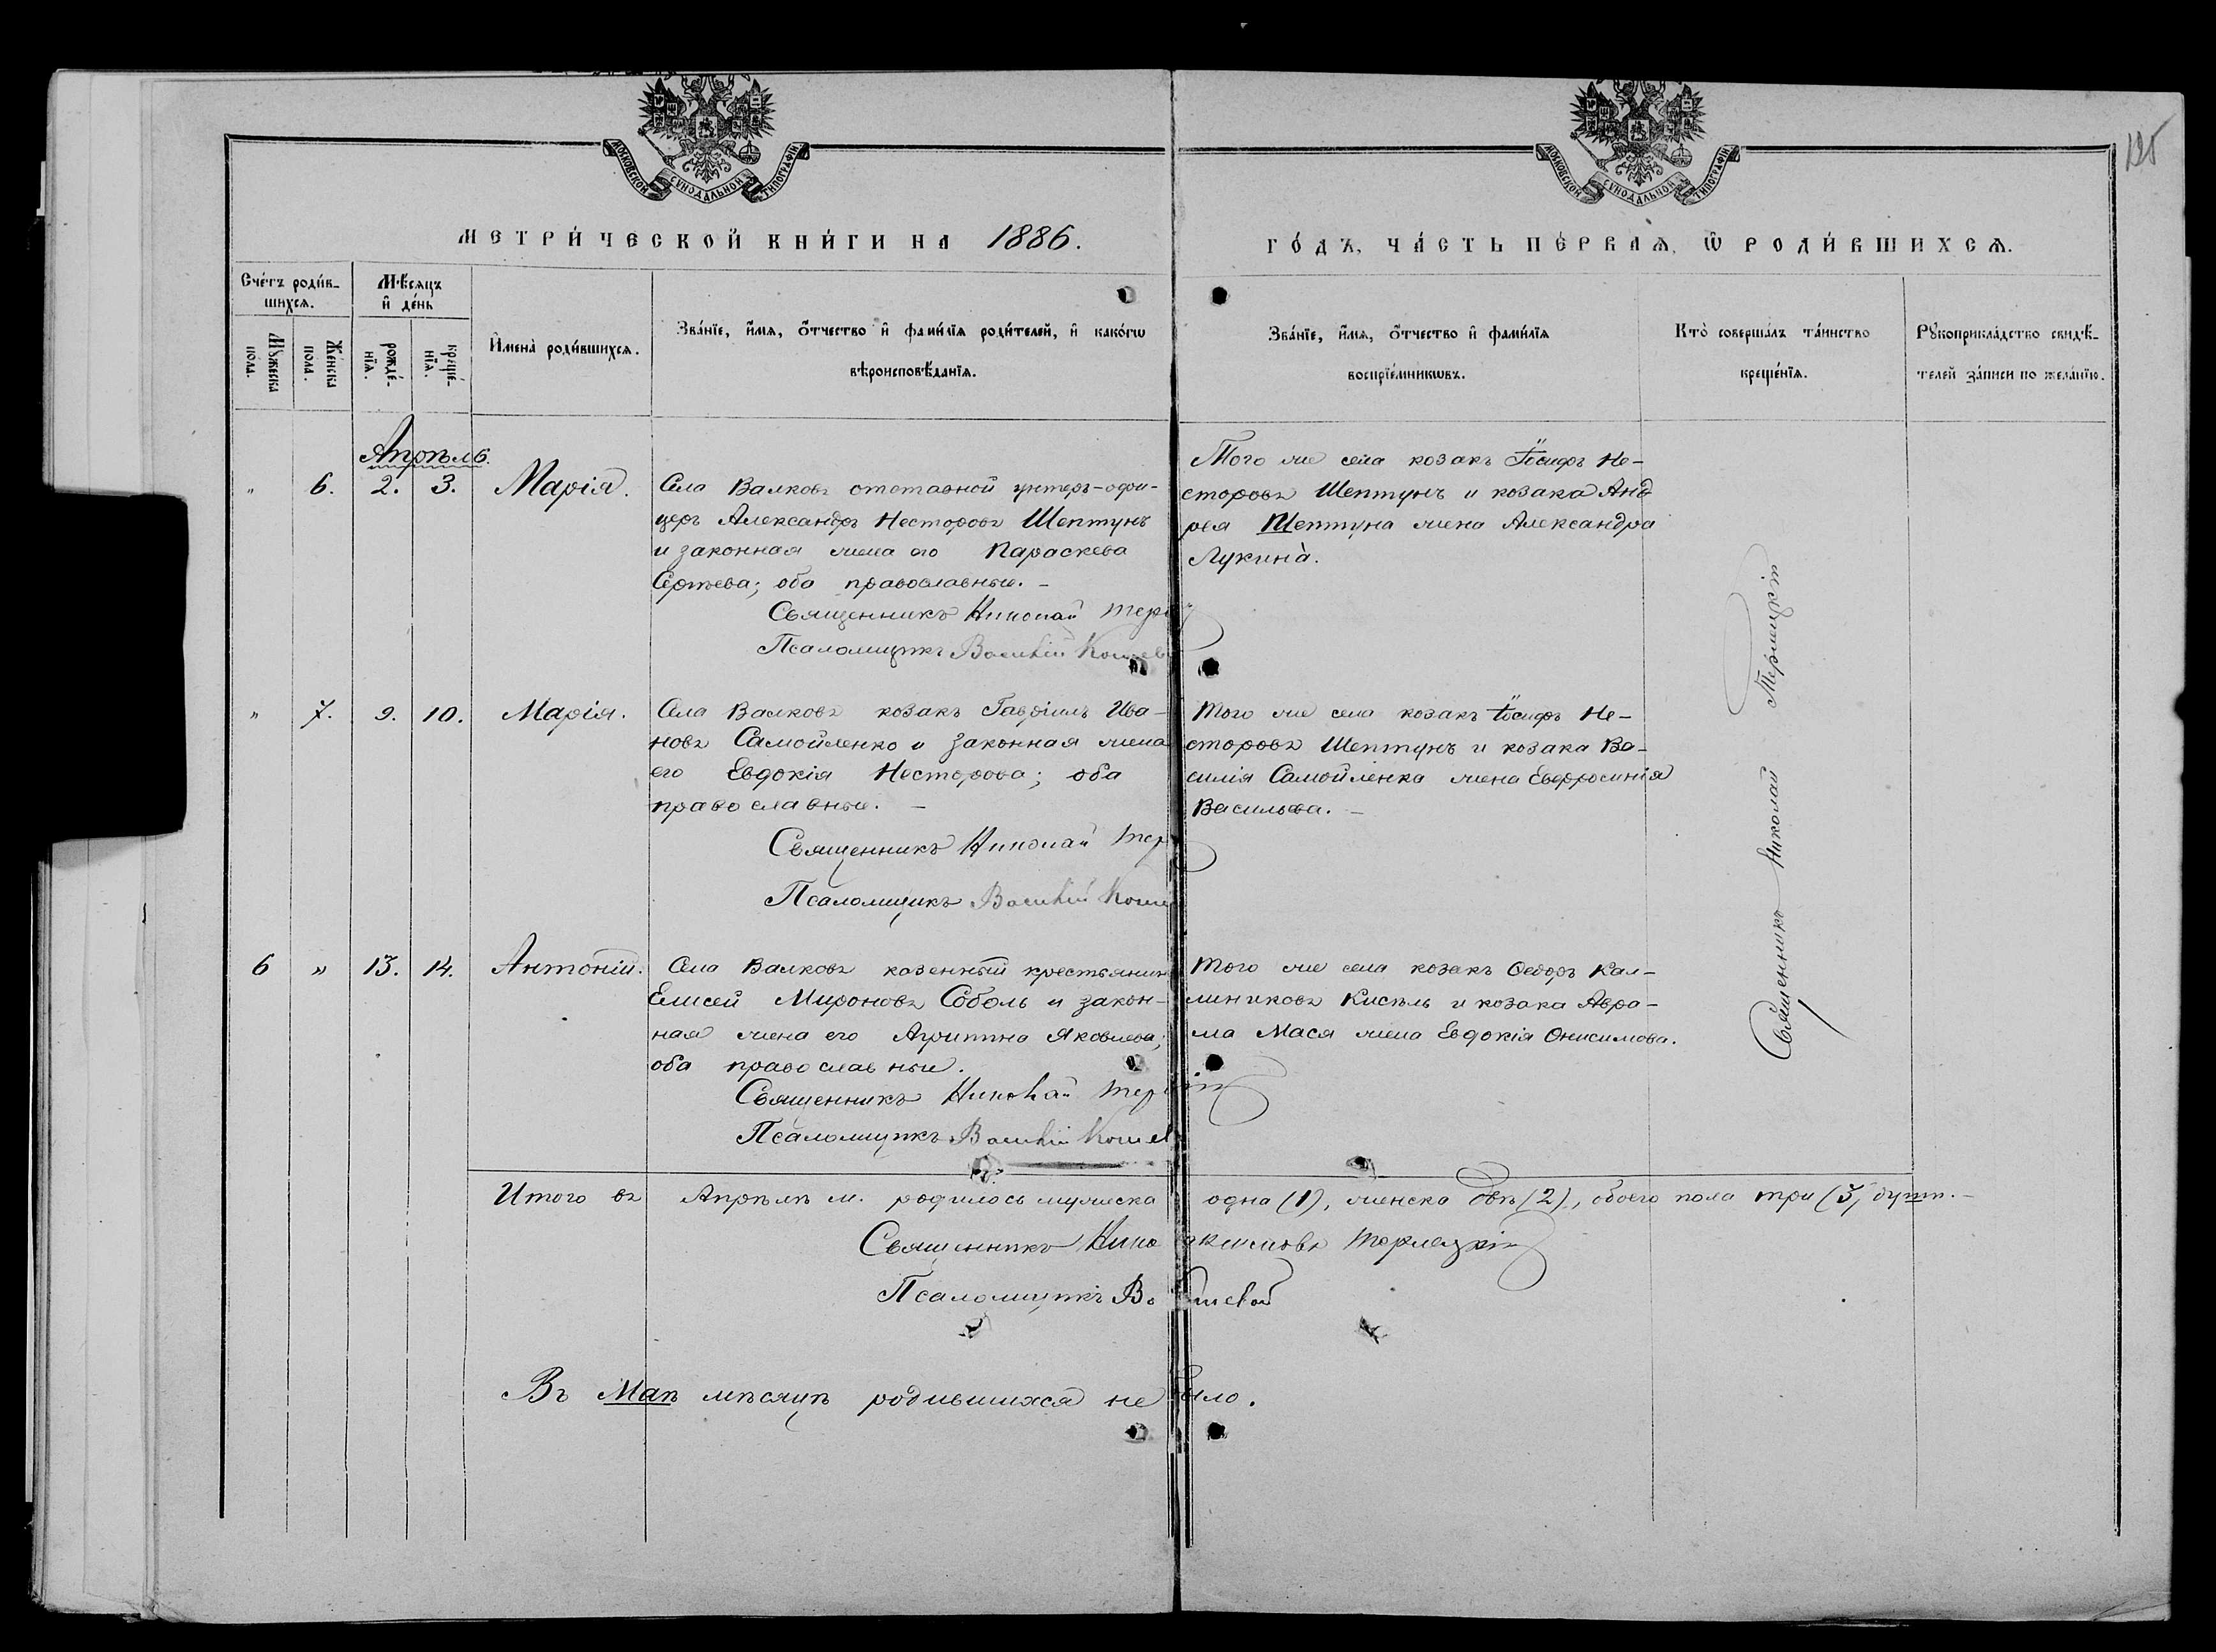 МОСКОВСКОЙ СѴНОДАЛЬНОЙ ТИПОГРАФІИ
МОСКОВСКОЙ СѴНОДАЛЬНОЙ ТИПОГРАФІИ
125
МЕТРИ́ЧЕСКОЙ КНИ́ГИ НА 1886.
ГО́ДЪ, ЧА́СТЬ ПЕ́РВАѦ, Ѿ РОДИ́ВШИХСѦ.
Сче́тъ роди́в-
шихсѧ.
Мѣ́сѧцъ
и҆ де́нь
Мꙋ́жеска
пола.
Же́нска
пола.
рожде́-
нїѧ.
креще́-
нїѧ.
И҆мена̀ роди́вшихсѧ.
Зва́нїе, и҆́мѧ, ѻ҆́тчество и҆ фами́лїѧ роди́телей, и҆ како́гѡ
вѣроисповѣ́данїѧ.
Зва́нїе, и҆́мѧ, ѻ҆́тчество и҆ фами́лїѧ
воспрїе́мникѡвъ.
Кто̀ соверша́лъ та́инство
креще́нїѧ.
Рꙋкоприкла́дство свидѣ́-
телей за́писи по жела́нїю.
Апрѣль.
" 6. 2. 3. Марія.
Села Валковъ отставной унтеръ-офи-
церъ Александръ Несторовъ Шептунъ
и законная жена его Параскева
Сергѣева; оба православные. -
Священникъ Николай Тер
Псаломщикъ Василій Кошев
Того же села козакъ Іосифъ Не-
сторовъ Шептунъ и козака Анд
рея Шептуна жена Александра
Лукина.
" 7. 9. 10. Марія.
Села Валковъ козакъ Гавріилъ Ива-
новъ Самойленко и законная жена
его Евдокія Несторова; оба
православные. -
Священникъ Николай Тер
Псаломщикъ Василій Коше
Того же села козакъ Іосифъ Не-
сторовъ Шептунъ и козака Ва-
силія Самойленка жена Евфросинія
Васильева. -
6 " 13. 14. Антоній.
Села Валковъ казенный крестьянин
Елисей Мироновъ Соболь и закон-
ная жена его Агрипина Яковлева;
оба православные.
Священникъ Николай Тер
Псаломщикъ Василій Кошев
Того же села козакъ Ѳедоръ Кал-
линиковъ Кисѣль и козака Авра-
ма Мася жена Евдокія Онисимова.
Священникъ Николай Терлецкій
Итого въ Апрѣлѣ м. родилось мужеска одна (1), женска двѣ (2), обоего пола три (3) душъ. -
Священникъ Нико Терлецкій
Псаломщикъ Ва шевой
Въ Маѣ мѣсяцѣ родившихся не было.